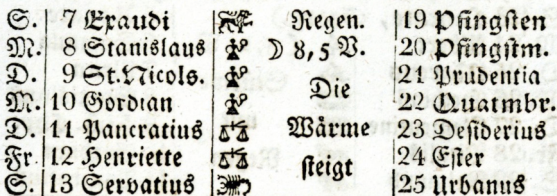 S. 7 Exaudi Regen. 19 Pfingsten
M. 8 Stanislaus ☽ 8, 5 V. 20 Pfingstm.
D. 9 St. Nicols. Die 21 Prudentia
M. 10 Gordian 22 Quatmbr.
D. 11 Pancratius Wärme 23 Desiderius
Fr. 12 Henriette steigt 24 Ester
S. 13 Servatius 25 Urbanus